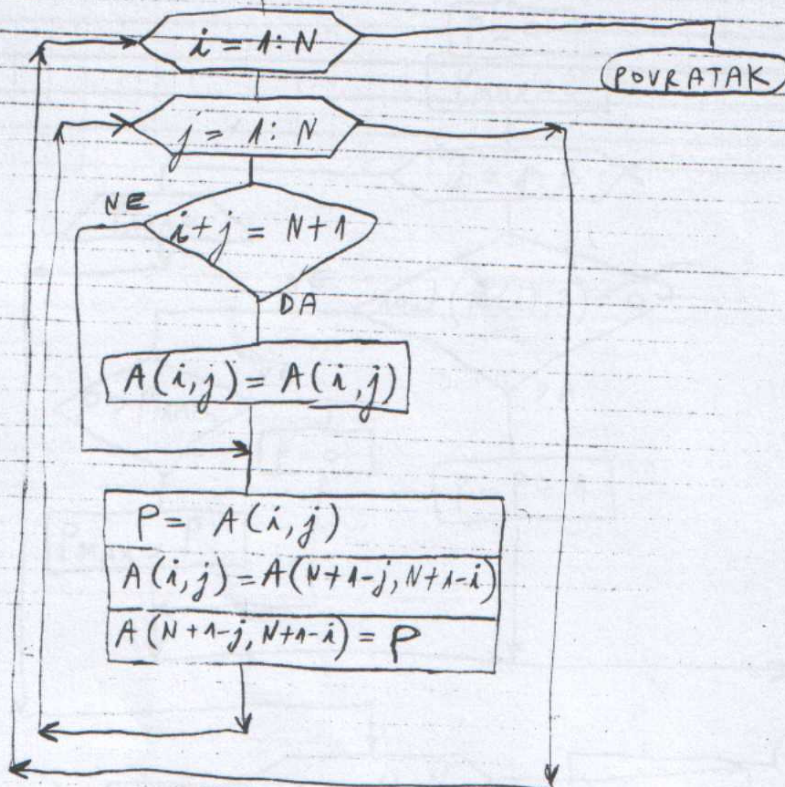 i = 1: N
POVRATAK
j = 1: N
NE
i+j = N+1
DA
A(i,j) = A(i,j)
P = A(i,j)
A(i,j) = A(N+1-j, N+1-i)
A(N+1-j, N+1-i) = P